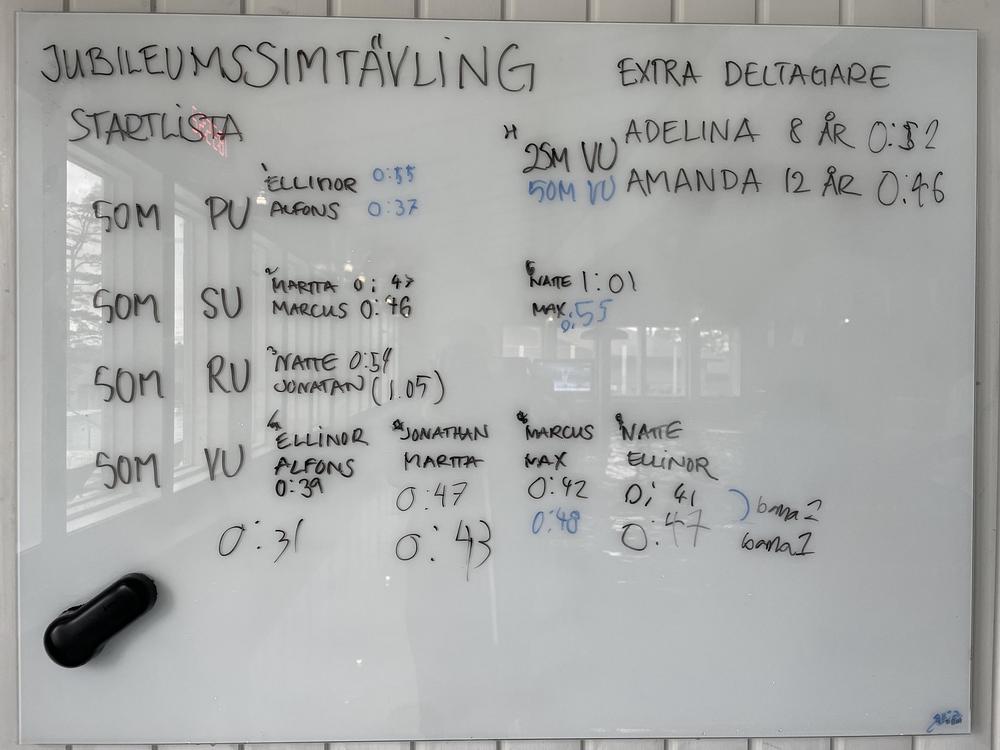 JUBILEUMSSIMTÄVLING
EXTRA DELTAGARE
STARTLISTA
25M VU ADELINA 8 ÅR 0:32
50M VU AMANDA 12 ÅR 0:46
50M PU
ELLINOR 0:55
ALFONS 0:37
50M SU
MARTTA 0:47
MARCUS 0:46
NATTE 1:01
MAX 0:55
50M RU
NATTE 0:54
JONATAN (1.05)
50M VU
ELLINOR
ALFONS
0:39
0:31
JONATHAN
MARTTA
0:47
0:43
MARCUS
MAX
0:42
0:48
NATTE
ELLINOR
0:41 bana 2
0:47 bana 1